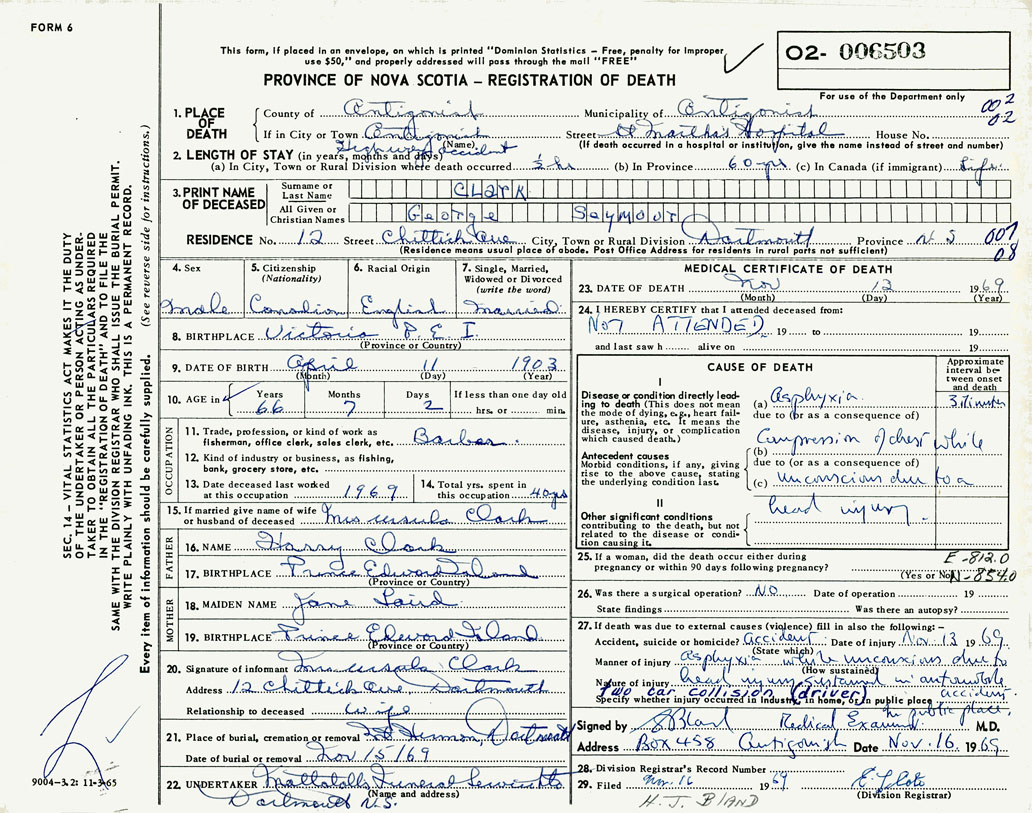 FORM 6
This form, if placed in an envelope, on which is printed "Dominion Statistics – Free, penalty for improper
use $50," and properly addressed will pass through the mail "FREE"
O2- 006503
PROVINCE OF NOVA SCOTIA – REGISTRATION OF DEATH
For use of the Department only
002
02
1. PLACE OF DEATH
County of Antigonish Municipality of Antigonish
If in City or Town Antigonish Street St Martha's Hospital House No.
(Name) (If death occurred in a hospital or institution, give the name instead of street and number)
Highway accident
2. LENGTH OF STAY (in years, months and days)
(a) In City, Town or Rural Division where death occurred ½ hr (b) In Province 60 yrs (c) In Canada (if immigrant) Life
3. PRINT NAME OF DECEASED
Surname or Last Name CLARK
All Given or Christian Names George Seymour
RESIDENCE No. 12 Street Chittick Ave City, Town or Rural Division Dartmouth Province N S 007
08
(Residence means usual place of abode. Post Office Address for residents in rural parts not sufficient)
4. Sex 5. Citizenship (Nationality) 6. Racial Origin 7. Single, Married, Widowed or Divorced (write the word)
Male Canadian English Married
8. BIRTHPLACE Victoria P.E.I.
(Province or Country)
9. DATE OF BIRTH April 11 1903
(Month) (Day) (Year)
10. AGE in Years Months Days If less than one day old
66 7 2 hrs. or min.
OCCUPATION
11. Trade, profession, or kind of work as
fisherman, office clerk, sales clerk, etc. Barber.
12. Kind of industry or business, as fishing,
bank, grocery store, etc.
13. Date deceased last worked
at this occupation 1969
14. Total yrs. spent in
this occupation 40 yrs
15. If married give name of wife
or husband of deceased Mrs Ursula Clark
FATHER
16. NAME Harry Clark
17. BIRTHPLACE Prince Edward Island
(Province or Country)
MOTHER
18. MAIDEN NAME Jane Laird
19. BIRTHPLACE Prince Edward Island
(Province or Country)
20. Signature of informant Mrs Ursula Clark
Address 12 Chittick Ave, Dartmouth
Relationship to deceased wife
21. Place of burial, cremation or removal Mt Hermon, Dartmouth
Date of burial or removal Nov 15/69
22. UNDERTAKER Mattatall's Funeral Service Ltd
(Name and address)
Dartmouth N.S.
MEDICAL CERTIFICATE OF DEATH
23. DATE OF DEATH Nov 13 1969
(Month) (Day) (Year)
24. I HEREBY CERTIFY that I attended deceased from:
NOT ATTENDED 19 to 19
and last saw h alive on 19
CAUSE OF DEATH
Approximate interval between onset and death
I
Disease or condition directly leading to death (This does not mean
the mode of dying, e.g., heart failure, asthenia, etc. It means the
disease, injury, or complication
which caused death.)
(a) Asphyxia 3 minutes
due to (or as a consequence of)
Compression of chest while
(b)
Antecedent causes
Morbid conditions, if any, giving
rise to the above cause, stating
the underlying condition last.
due to (or as a consequence of)
(c) unconscious due to a
II
head injury.
Other significant conditions
contributing to the death, but not
related to the disease or condition causing it.
25. If a woman, did the death occur either during
pregnancy or within 90 days following pregnancy?
(Yes or No)
E-812.0
N-854.0
26. Was there a surgical operation? NO Date of operation 19
State findings Was there an autopsy?
27. If death was due to external causes (violence) fill in also the following:–
Accident, suicide or homicide? accident Date of injury Nov. 13 1969
(State which)
Manner of injury Asphyxia while unconscious due to
(How sustained)
Nature of injury head injury sustained in automobile
Two car collision (driver) accident
Specify whether injury occurred in industry, in home, or in public place in public place.
Signed by Bland Medical Examiner M.D.
Address Box 458 Antigonish Date Nov. 16 1969
28. Division Registrar's Record Number
29. Filed Nov. 16 1969
(Division Registrar)
H. J. BLAND
SEC. 14 – VITAL STATISTICS ACT MAKES IT THE DUTY
OF THE UNDERTAKER OR PERSON ACTING AS UNDER-
TAKER TO OBTAIN ALL THE PARTICULARS REQUIRED
IN THE "REGISTRATION OF DEATH" AND TO FILE THE
SAME WITH THE DIVISION REGISTRAR WHO SHALL ISSUE THE BURIAL PERMIT.
WRITE PLAINLY WITH UNFADING INK. THIS IS A PERMANENT RECORD.
Every item of information should be carefully supplied. (See reverse side for instructions.)
9004-3.2: 11-3-65